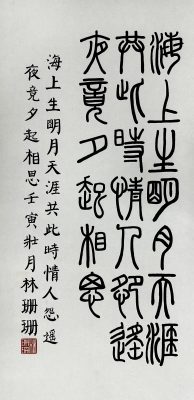 海上生明月天涯
共此時情人怨遙
夜竟夕起相思
海上生明月天涯共此時情人怨遙
夜竟夕起相思壬寅壯月林珊珊